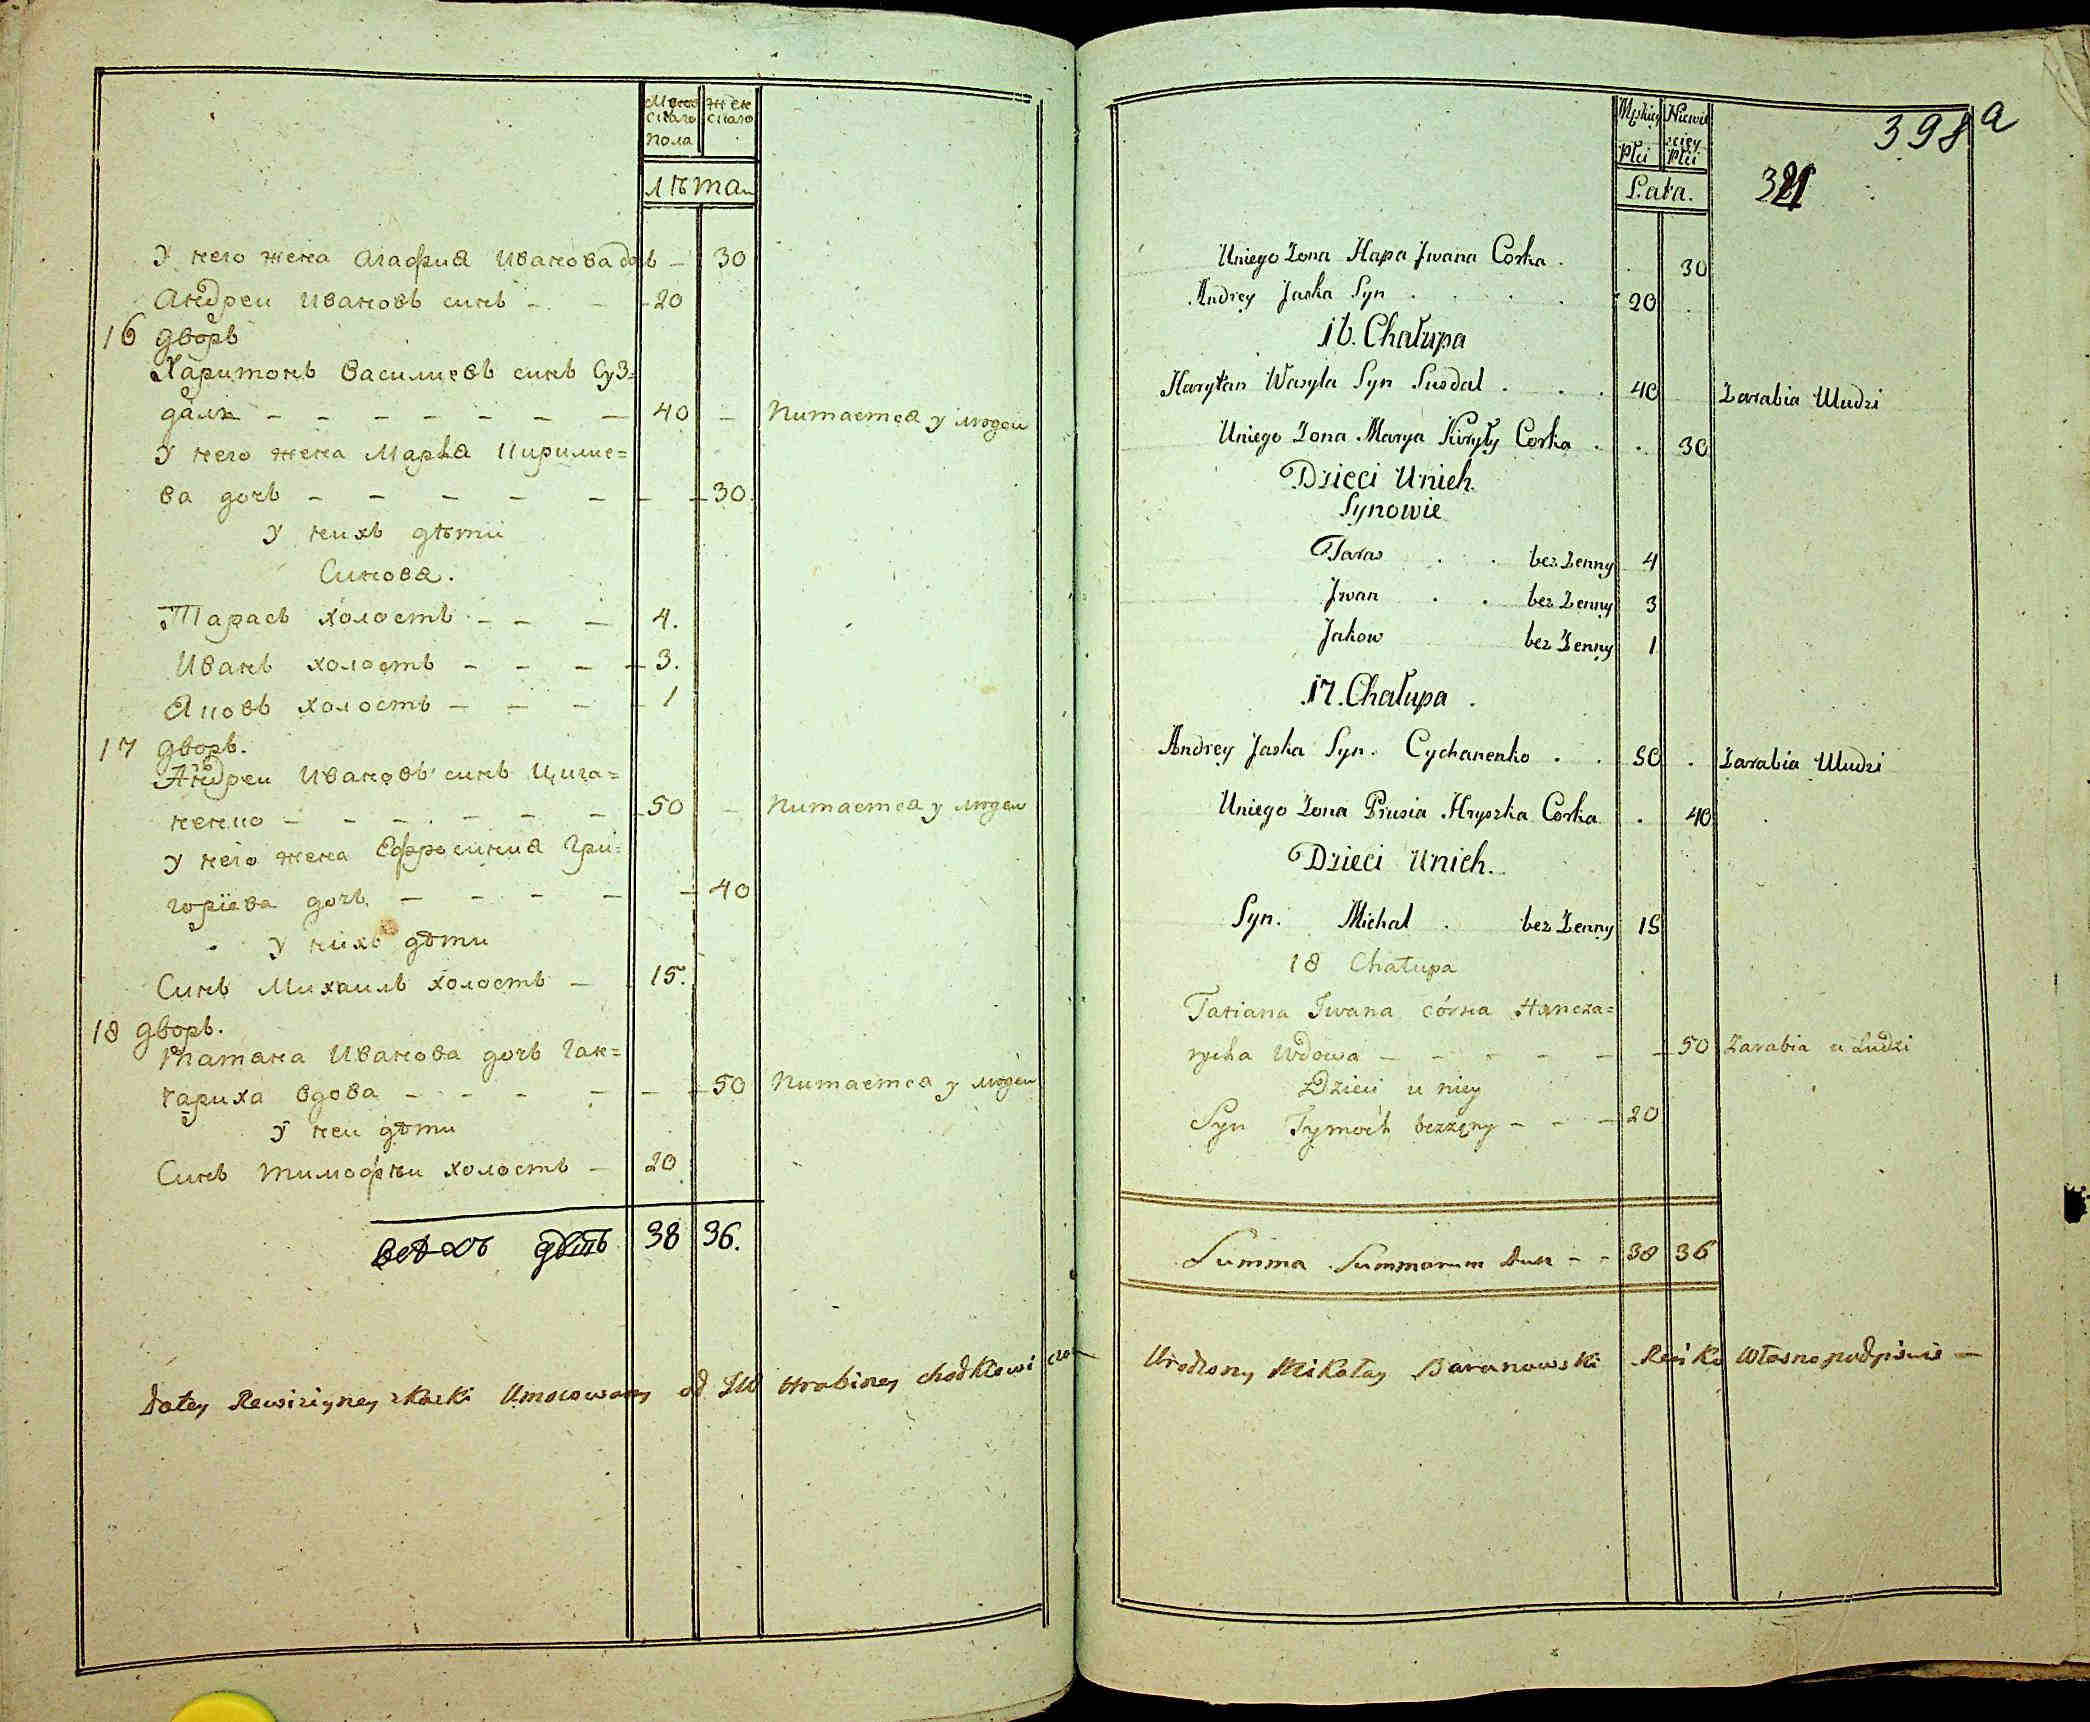 Мужескаго пола
женскаго
лѣта
У него жена Агафиа Иванова дочь — 30
Андреи Ивановъ синъ — 20
16 дворъ
Харитонъ Василиевъ синъ Суз=
даля — — — — — — 40 — Питается у людеи
У него жена Мария Кирилие=
ва дочь — — — — — 30.
У нихъ дѣти
Синовя.
Тарасъ холостъ — — — 4.
Иванъ холостъ — — — 3.
Яковъ холостъ — — — 1
17 дворъ.
Андреи Ивановъ синъ Цига=
ненко — — — — — 50 — Питается у людеи
У него жена Ефросиния Гри=
горїева дочь — — — — 40
У нихъ дѣти
Синъ Михаилъ холостъ — 15.
18 дворъ.
Татана Иванова дочь Ган=
чариха вдова — — — — 50 Питается у людеи
У неи дѣти
Синъ Тимофѣи холостъ — 20
всѣхъ дѣшъ 38 36.
Do tey Rewizyiney skaski Umocowany od JW Hrabiney Chodkiewi czo—
398 a
321
Męskiey Płci
Niewiesciey Płci
Lata.
Uniego Zona Hapa Jwana Corka . . 30
Andrey Jaska Syn . . . . 20
16. Chałupa
Harytan Wasyla Syn Susdal . . . 40 Zarabia Uludzi
Uniego Zona Marya Kiryły Corka . . 30
Dzieci Unich.
Synowie
Taras . . bez Zenny 4
Jwan . . bez Zenny 3
Jakow bez Zenny 1
17. Chałupa .
Andrey Jaska Syn. Cychanenko . . 50 . Zarabia Uludzi
Uniego Zona Prusia Hryszka Corka . 40
Dzieci Unich.
Syn. Michał . bez Zenny 15
18 Chałupa
Tatiana Iwana córka Hancza=
rycha Wdowa — — — — — 50 Zarabia u Ludzi
Dzieci u niey
Syn Tymoch bezzęny — — — 20
Summa Summarum Dusz — — 38 36
Urodzony Mikołay Baranowski Ręnką Własną podpisuie —